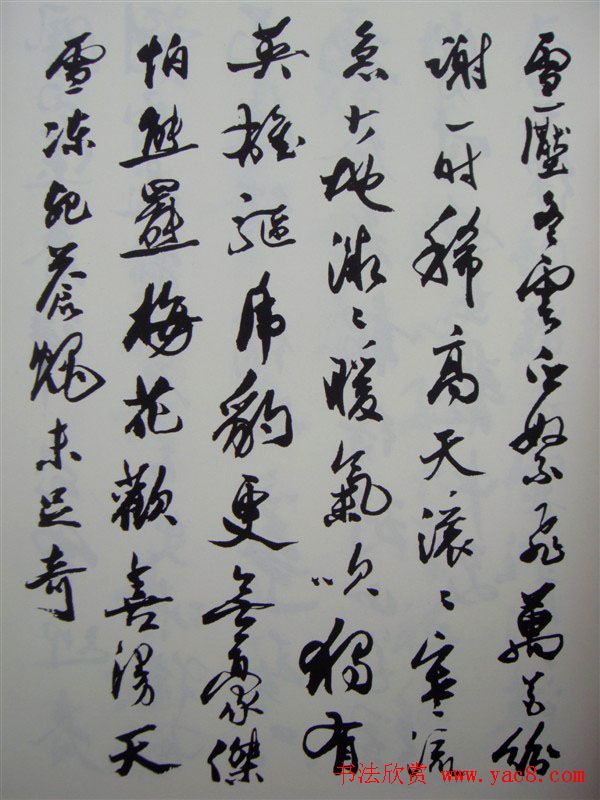 雪壓冬雲白絮飛萬花紛
謝一时稀高天滾〻寒流
急大地微〻暖氣吹獨有
英雄驅虎豹更無豪傑
怕熊羆梅花歡喜漫天
雪凍死蒼蠅未足奇
书法欣赏 www.yac8.com